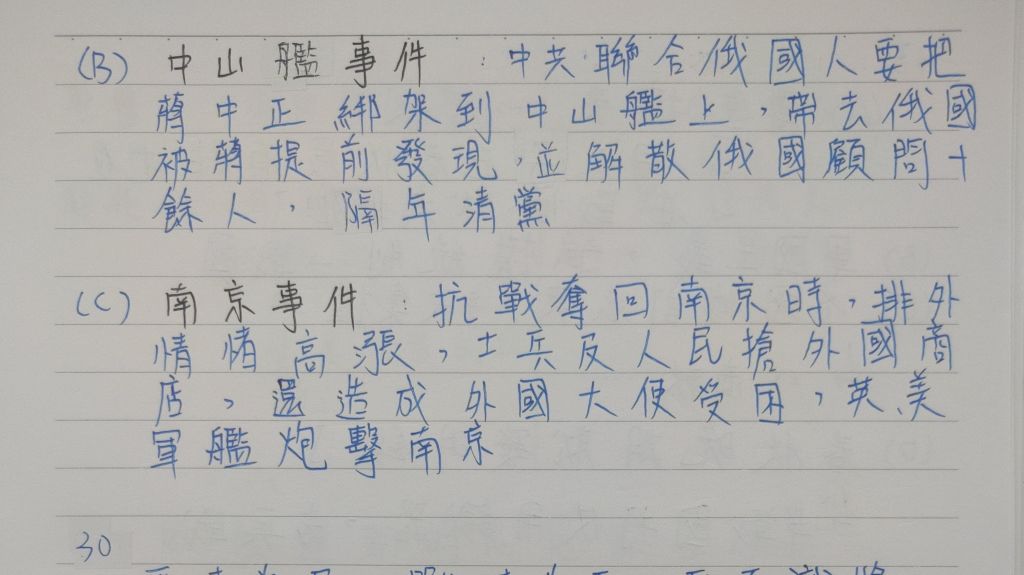 (B) 中山艦事件：中共聯合俄國人要把
蔣中正綁架到中山艦上，帶去俄國
被蔣提前發現，並解散俄國顧問十
餘人，隔年清黨
(C) 南京事件：抗戰奪回南京時，排外
情緒高漲，士兵及人民搶外國商
店，還造成外國大使受困，英、美
軍艦炮擊南京
30